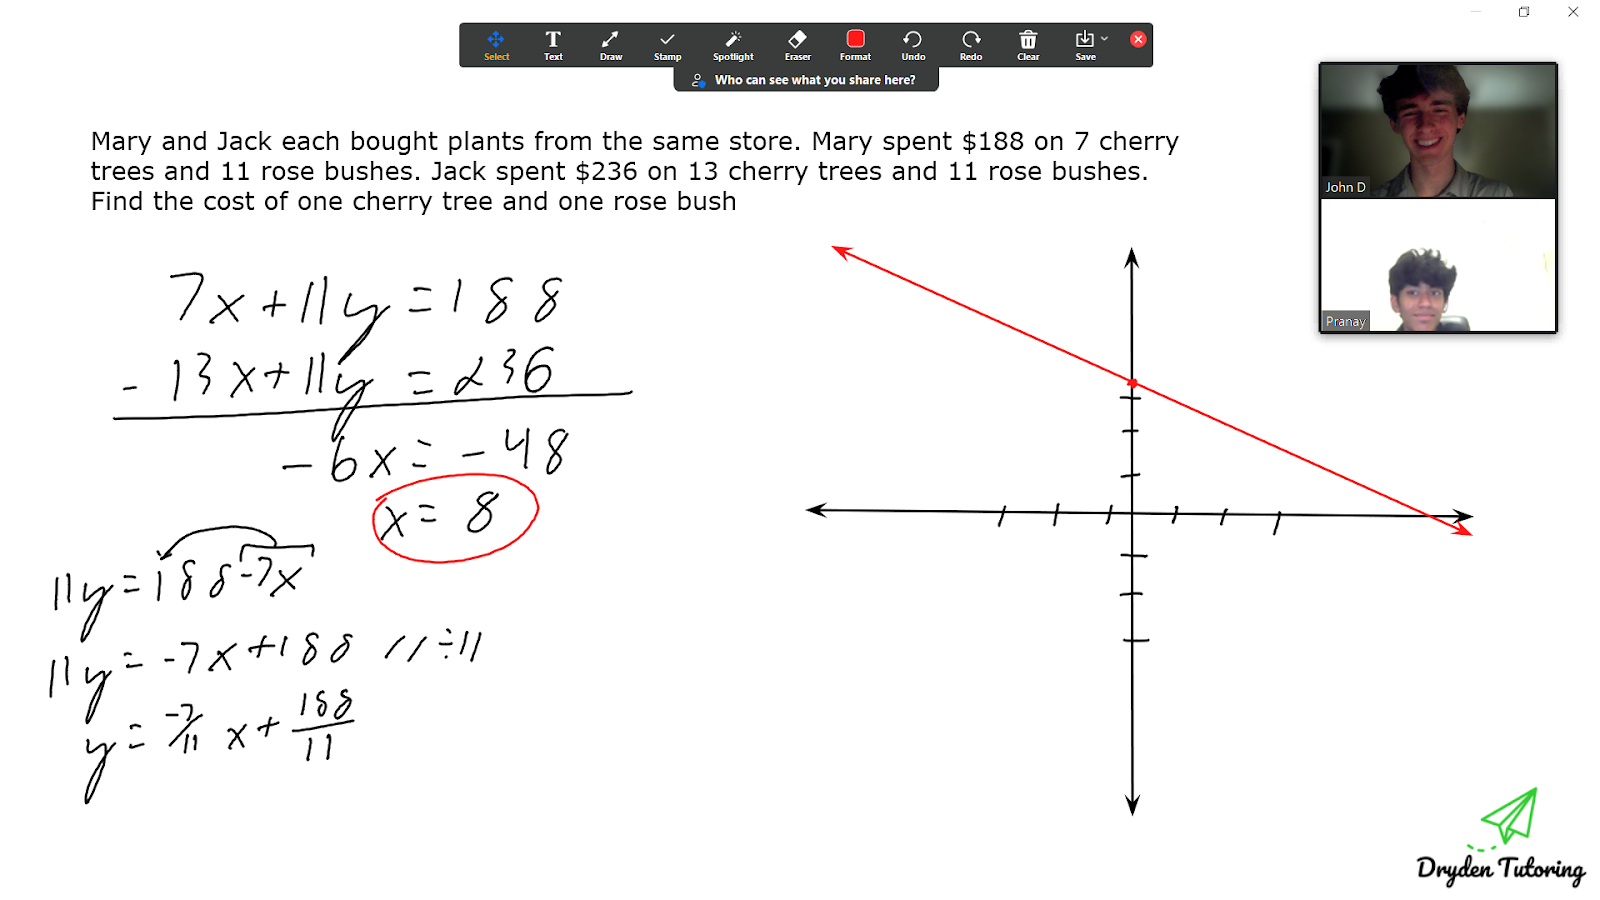 Select Text Draw Stamp Spotlight Eraser Format Undo Redo Clear Save
Who can see what you share here?
John D
Pranay
Mary and Jack each bought plants from the same store. Mary spent $188 on 7 cherry
trees and 11 rose bushes. Jack spent $236 on 13 cherry trees and 11 rose bushes.
Find the cost of one cherry tree and one rose bush
7x+11y=188
- 13x+11y=236
-6x=-48
x=8
11y=188-7x
11y=-7x+188 // ÷11
y=-7/11 x+188/11
Dryden Tutoring